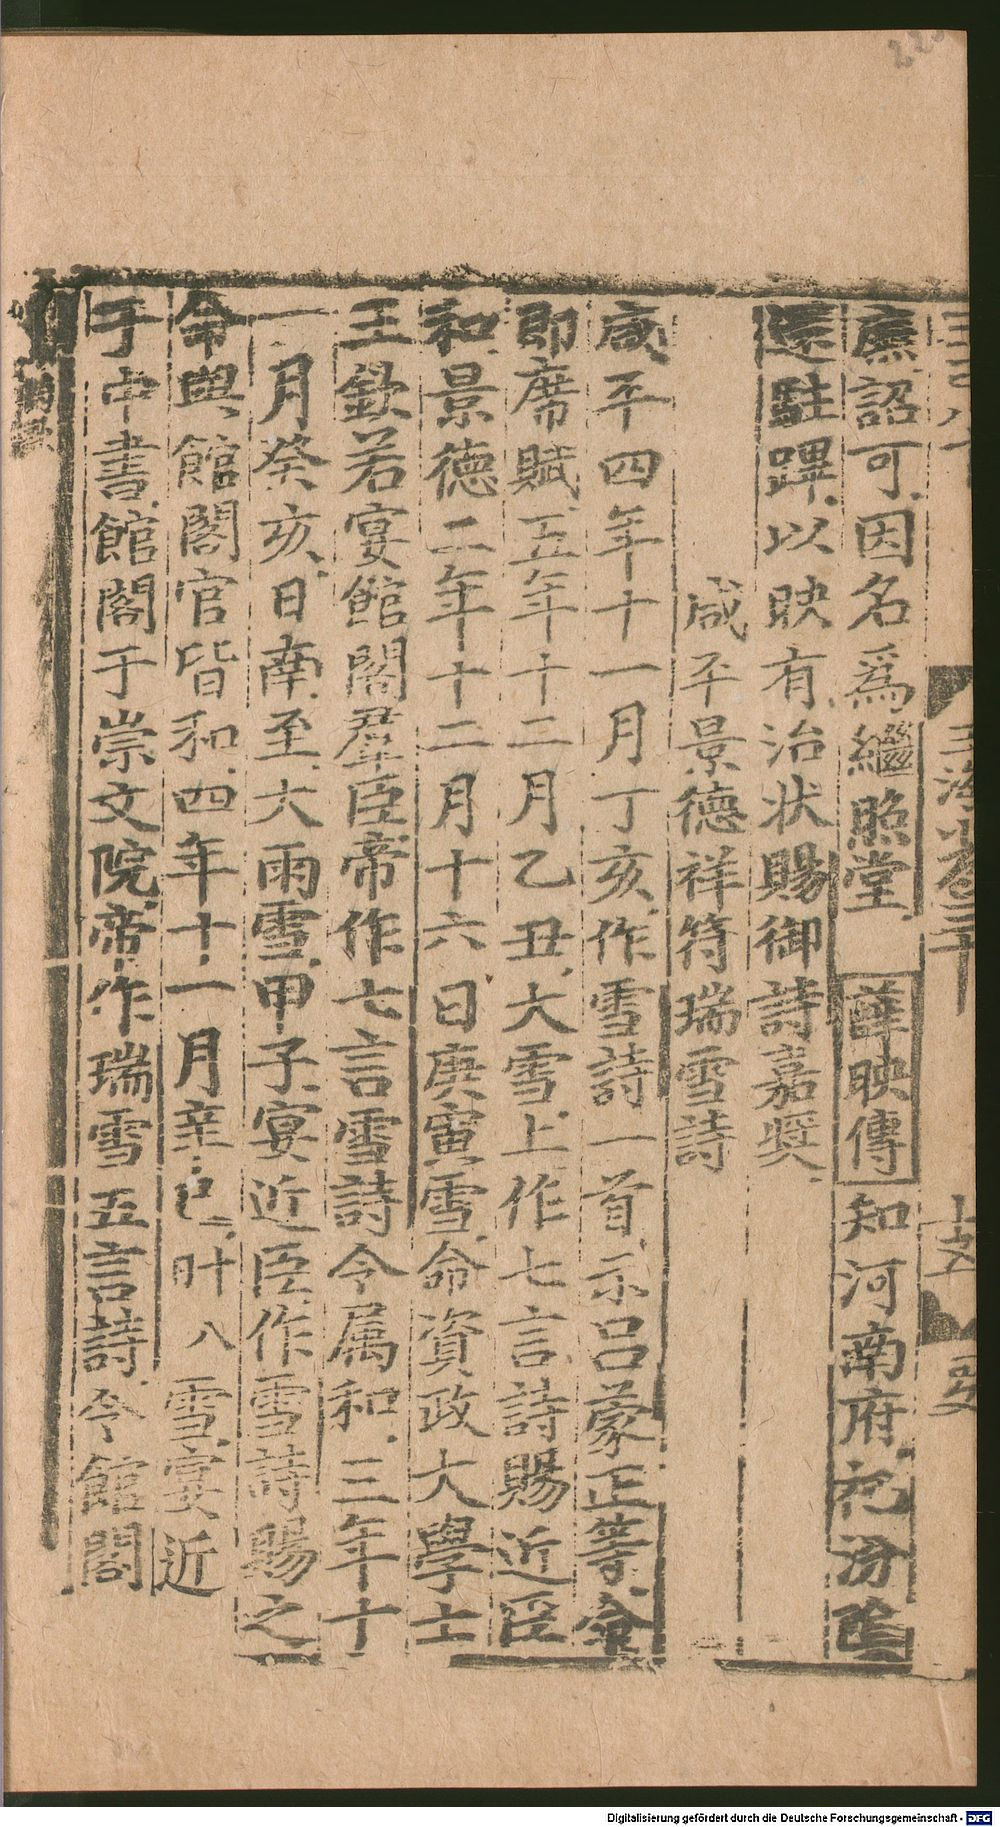 廡詔可因名爲繼照堂 薛映傳 知河南府祀汾陰
還駐蹕以映有治状賜御詩嘉奬
咸平景德祥符瑞雪詩
咸平四年十一月丁亥作雪詩一首示吕蒙正等令
即席賦五年十二月乙丑大雪上作七言詩賜近臣
和景德二年十二月十六日庚寅雪命資政大學士
王欽若宴館閣羣臣帝作七言雪詩令属和三年十
一月癸亥日南至大雨雪甲子宴近臣作雪詩賜之
令與館閣官皆和四年十一月辛巳 八雪宴近
于中書館閣于崇文院帝作瑞雪五言詩令館閣
Digitalisierung gefördert durch die Deutsche Forschungsgemeinschaft - DFG